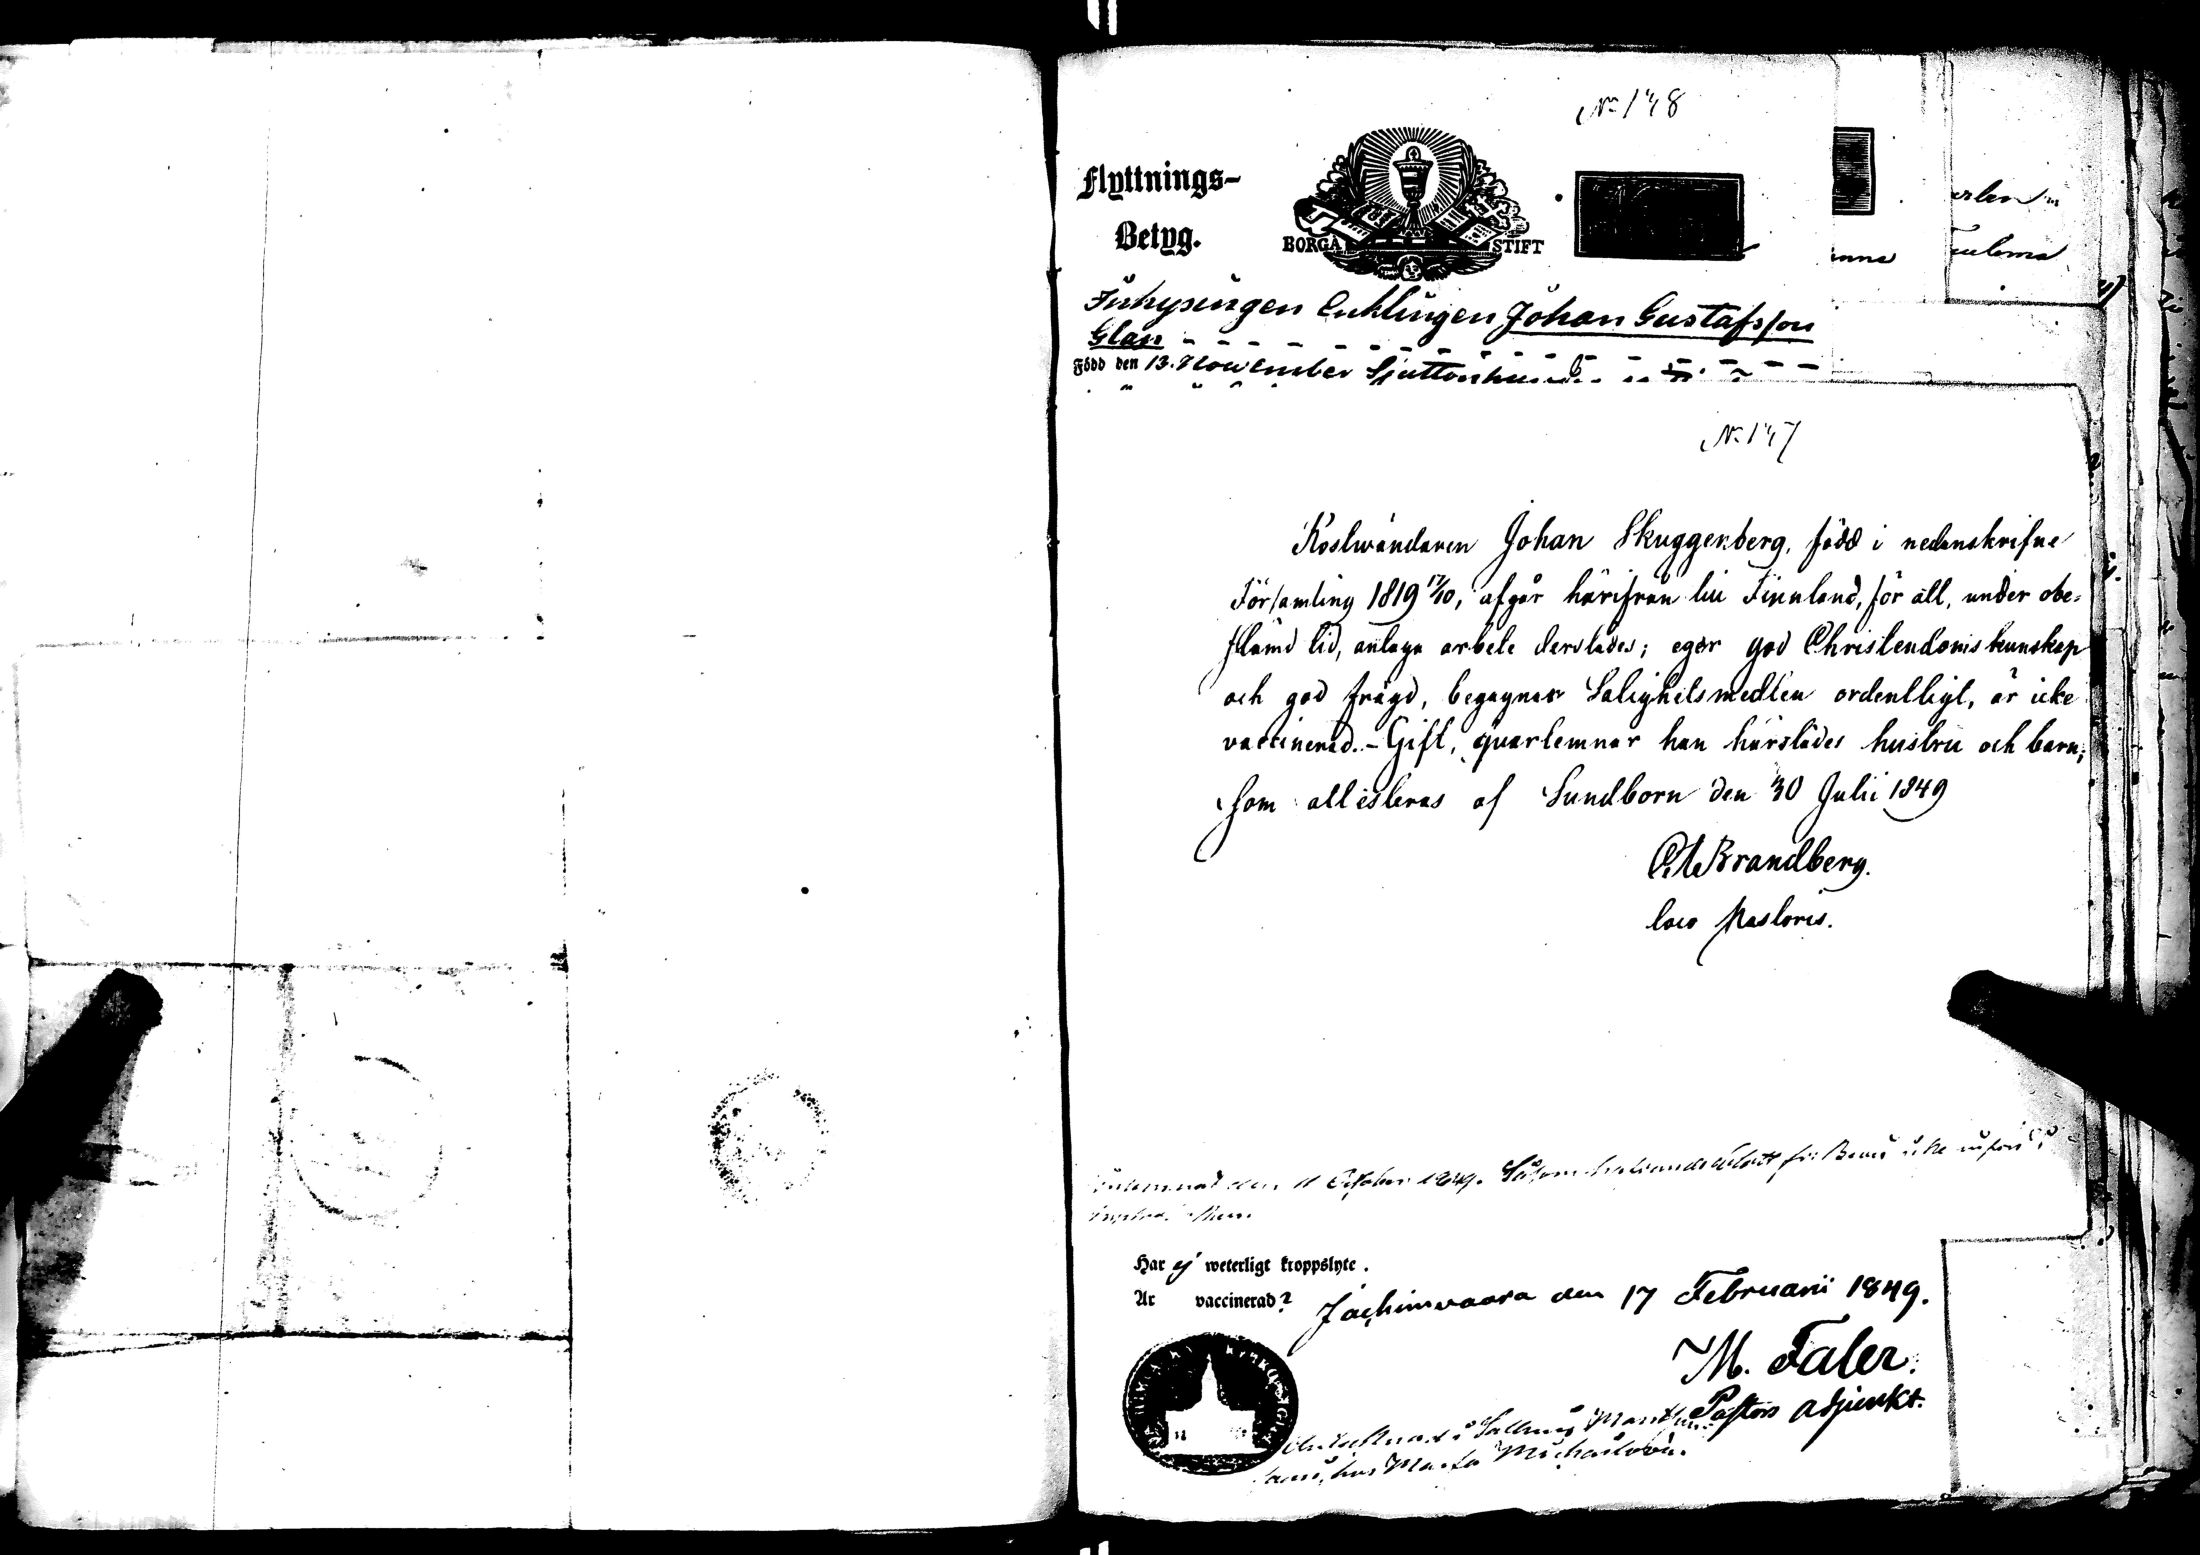 No 148
Flyttnings-
Betyg.
BORGÅ STIFT
Inhysingen Enklingen Johan Gustafsson
Glan
Född den 13. November Sjuttonhu
No 147
Kolswändaren Johan Skuggenberg, född i nedanskrifne
Församling 1819 17/10, afgår härifrån till Finnland, för att, under obe-
stämd tid, antaga arbete derstädes; eger god Christendomskunskap
och god frägd, begagnar Salighetsmedlen ordentligt, är icke
vaccinerad. - Gift, qvarlemnar han härstädes hustru och barn;
Som attesteras af Sundborn den 30 Julii 1849
Brandberg.
loco Pastoris.
den 11 October 1849. Såsom
Har ej weterligt kroppslyte.
Är vaccinerad?
Jachimvaara den 17 Februarii 1849.
M. Faler.
Pastors Adjunkt.
hos Michailovin.